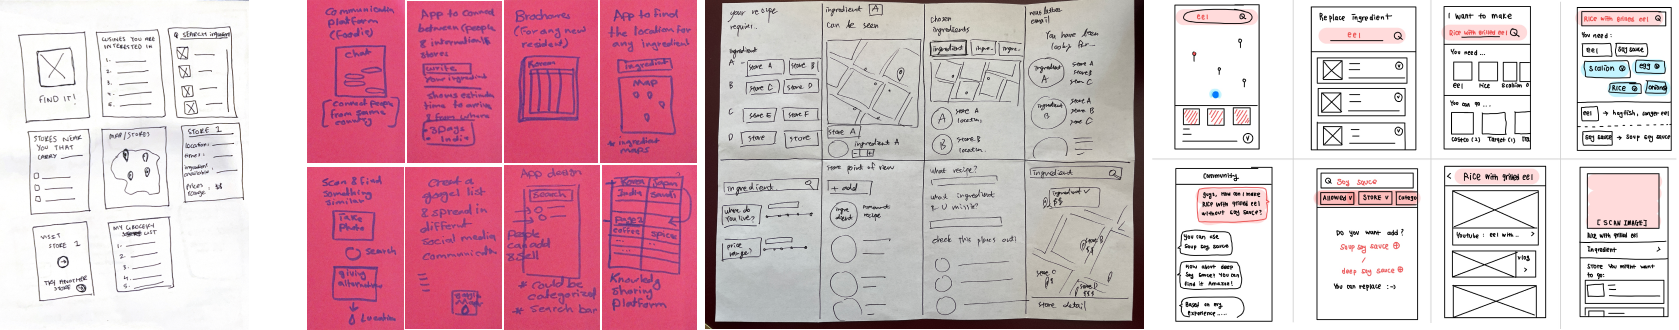 FIND IT!
CUISINES YOU ARE
INTERESTED IN
1.
2.
3.
4.
5.
Q SEARCH
STORES NEAR
YOU THAT
CARRY
MAP/STORES
STORE 1
location:
Prices
VISIT
STORE 2
TRY ANOTHER
STORE
MY GROCERY
LIST
1.
2.
3.
4.
5.
Communication
platform
(foodie)
chat
(connect people
from same
country)
App to connect
between (people
& international
stores
write
your ingredient
shows estimate
time to arrive
& from where
Brochures
(for any new
resident)
Korean
App to find
the location for
any ingredient
ingredient
Map
* ingredient
maps
Scan & find
something
similar
take
Photo
Search
giving
alternative
Location
Create a
google list
& spread in
different
social media
App design
Search
People
can add
& Sell
* could be
categorized
* Search bar
Korean
Japan
India
Saudi
coffee
spice
Knowledge
sharing
platform
your recipe
requires..
ingredient
A
store A
store B
B
store C
store D
C
store E
store F
D
store
store
ingredient A
can be seen
store A
ingredient A
chosen
ingredients
ingredient
ingre..
ingre..
A
store A
location
B
store B
location
newsletter
email
You have been
looking for...
ingredient
A
store A
store B
store C
ingredient
B
store A
store B
store C
ingredient
where do
you live?
price
range?
store point of view
+ add
ingre
dient
recipe
what recipe?
what ingredient
R U missing?
check this places out!
ingredient
ingredient
$$
store detail
eel
Replace ingredient
eel
I want to make
Rice with grilled eel
You need ...
eel
rice
Scalion
You can go ...
Costco (2)
Target (1)
Rice with grilled eel
You need:
eel
Soy sauce
Scalion
egg
Rice
onion
eel → hagfish, conger eel
Soy sauce → Soup soy sauce
Community
Guys, how can I make
Rice with grilled eel
without soy sauce?
You can use
Soup soy sauce
How about deep
soy sauce? You can
find it Amazon!
Based on my
experience.....
Soy sauce
STORE
Do you want add?
Soup soy sauce
/
deep soy sauce
You can replace :->
Rice with grilled eel
Youtube : eel with...
vlog
[ SCAN IMAGE ]
Rice with grilled eel
Ingredient
Store You might want
to go: